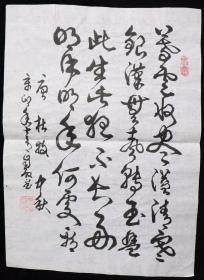 暮雲收盡溢清寒
銀漢無聲轉玉盤
此生此夜不長好
明月明年何處看
唐 杜牧 中秋
辛卯年